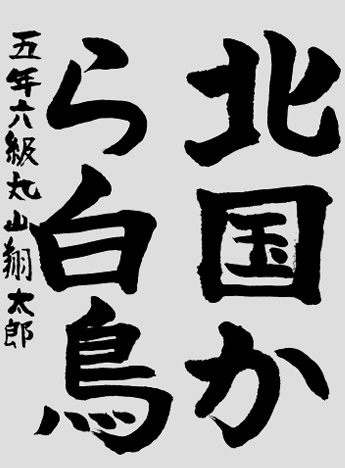 北国か
ら白鳥
五年六級丸山翔太郎